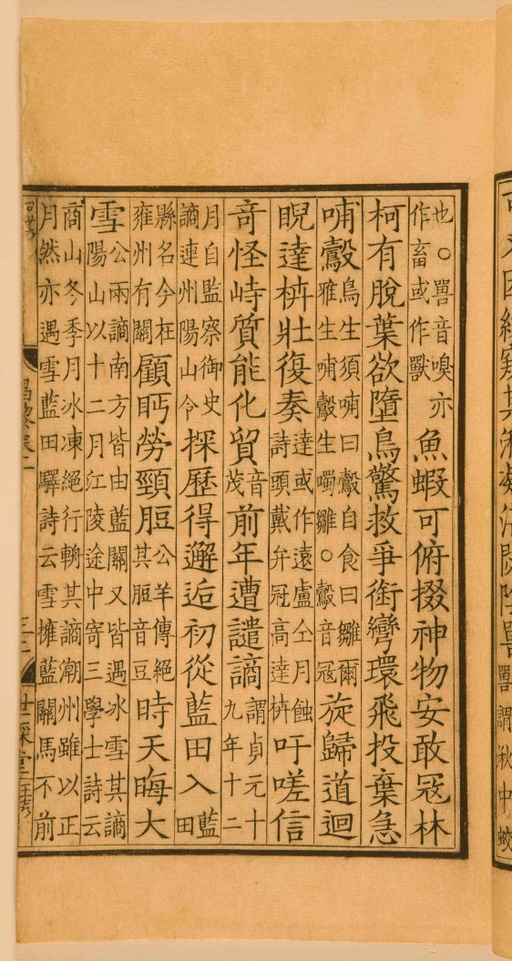 也〇嘼音嗅亦作畜或作獸魚蝦可俯掇神物安敢寇林
柯有脫葉欲墮鳥驚救爭銜彎環飛投棄急
哺鷇鳥生須哺曰鷇自食曰雛爾雅生哺鷇生噣雛〇鷇音寇旋歸道迴
睨達枿壯復奏達或作遠盧仝月蝕詩頭戴弁冠高達枿吁嗟信
奇怪峙質能化貿音茂前年遭譴謫謂貞元十九年十二
月自監察御史謫連州陽山令探歷得邂逅初從藍田入藍田
縣名今在雍州有關顧眄勞頸脰公羊傳絕其脰音豆時天晦大
雪公兩謫南方皆由藍關又皆遇冰雪其謫陽山以十二月江陵途中寄三學士詩云
商山冬季月冰凍絕行輈其謫潮州雖以正月然亦遇雪藍田驛詩云雪擁藍關馬不前
世綵堂